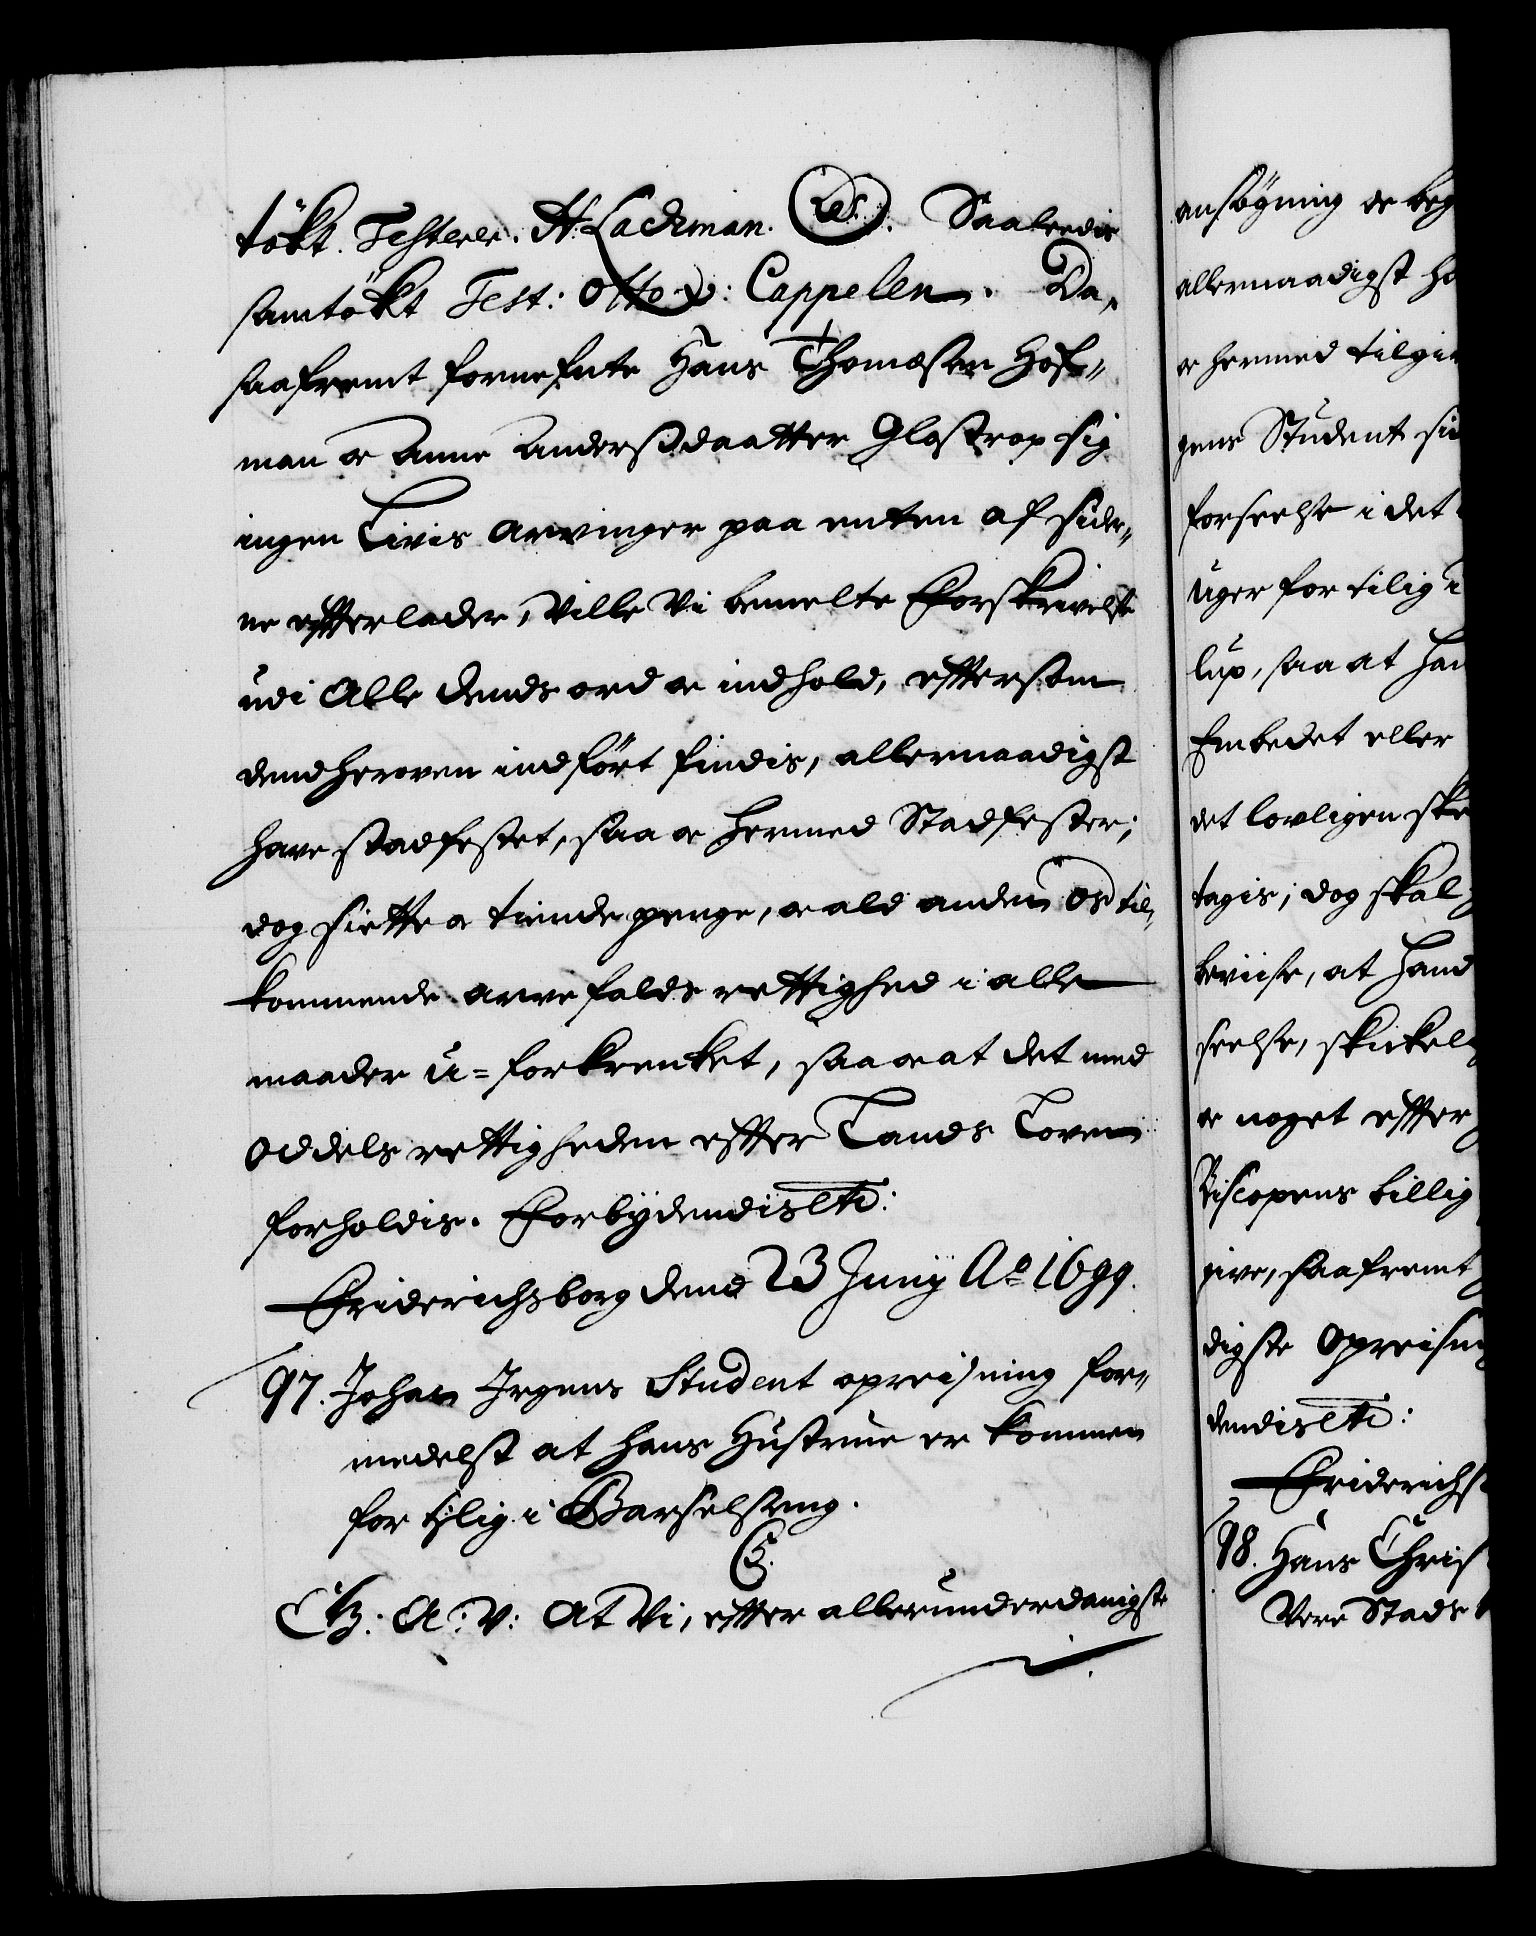 tökt. Testerer. H: Lackman. (LS.). Saaleedis
samtökt Test: Otto v: Cappelen. Da,
saafremt fornefnte Hans Thomesen Hof„
man oc Anne Anderssdaatter Glostrop sig
ingen Livis Arvinger paa enten af sider„
ne effterlader, Ville Vi bemelte Forskrivelse
udi Alle dends ord oc indhold, effterssom
dend heroven indfört findis, allernaadigst
have stadfestet, saa oc hermed Stadfester;
dog siette oc tiende penge, oc ald anden Os til„
kommende arvefalds rettighed i alle
maader u=forkrencket, saa oc at det med
Oddels rettigheden effter Lands Loven
forholdis. Forbydendis etc:
Friderichsborg dend 23 Junij Ao 1699.
97. Johan Irgens Student opreisning for„
medelst at hans Hustrue er kommen
for tilig i Barselseng.
C 5. A: V: At Vi, effter allerunderdanigste
ansögning oc beg
allernaadigst ha
oc hermed tilgi
gens Student si
forseelse i det
uger for tilig i
lup, saa at han
Embedet eller
det lovligen ske
tagis; dog skal
beviise, at hand
seelse, skickel
oc noget effter
Biscopens billig
give, saafremt
digste Opreisn
dendis etc:
Friderichs
98. Hans Chris
Vere Stads